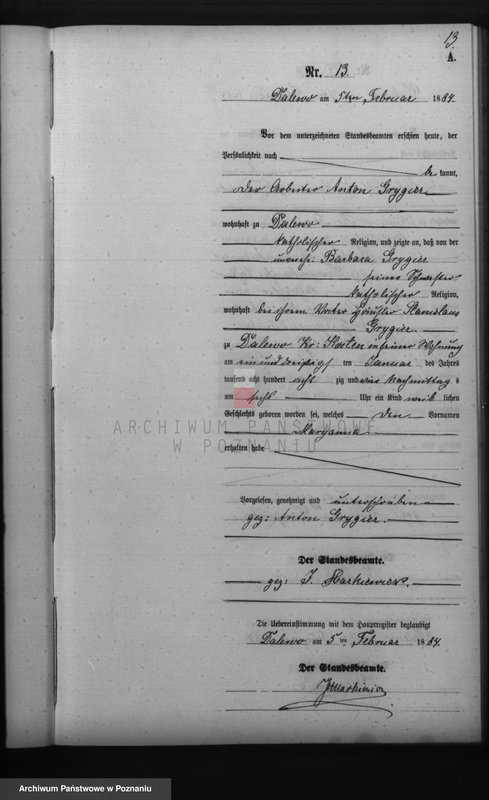 13.
A.
Nr. 13.
Dalewo am 5ten Februar 1884.
Vor dem unterzeichneten Standesbeamten erschien heute, der
Persönlichkeit nach
be kannt,
der Arbeiter Anton Grygier
wohnhaft zu Dalewo
katholischer Religion, und zeigte an, daß von der
unverehe: Barbara Grygier
seiner Schwester
katholischer Religion,
wohnhaft bei ihrem Vater Häusler Stanislaus
Grygier.
zu Dalewo Kr: Kosten in seiner Wohnung
am ein und dreißig ten Januar des Jahres
tausend acht hundert acht zig und vier Nachmittag s
um sechs Uhr ein Kind weib lichen
Geschlechts geboren worden sei, welches den Vornamen
Maryanna
erhalten habe
ARCHIWUM PAŃSTWOWE
W POZNANIU
Vorgelesen, genehmigt und unterschrieben
gez: Anton Grygier.
Der Standesbeamte.
gez: J. Markiewicz.
Die Uebereinstimmung mit dem Hauptregister beglaubigt
Dalewo am 5ten Februar 1884.
Der Standesbeamte.
JMarkiewicz
Archiwum Państwowe w Poznaniu